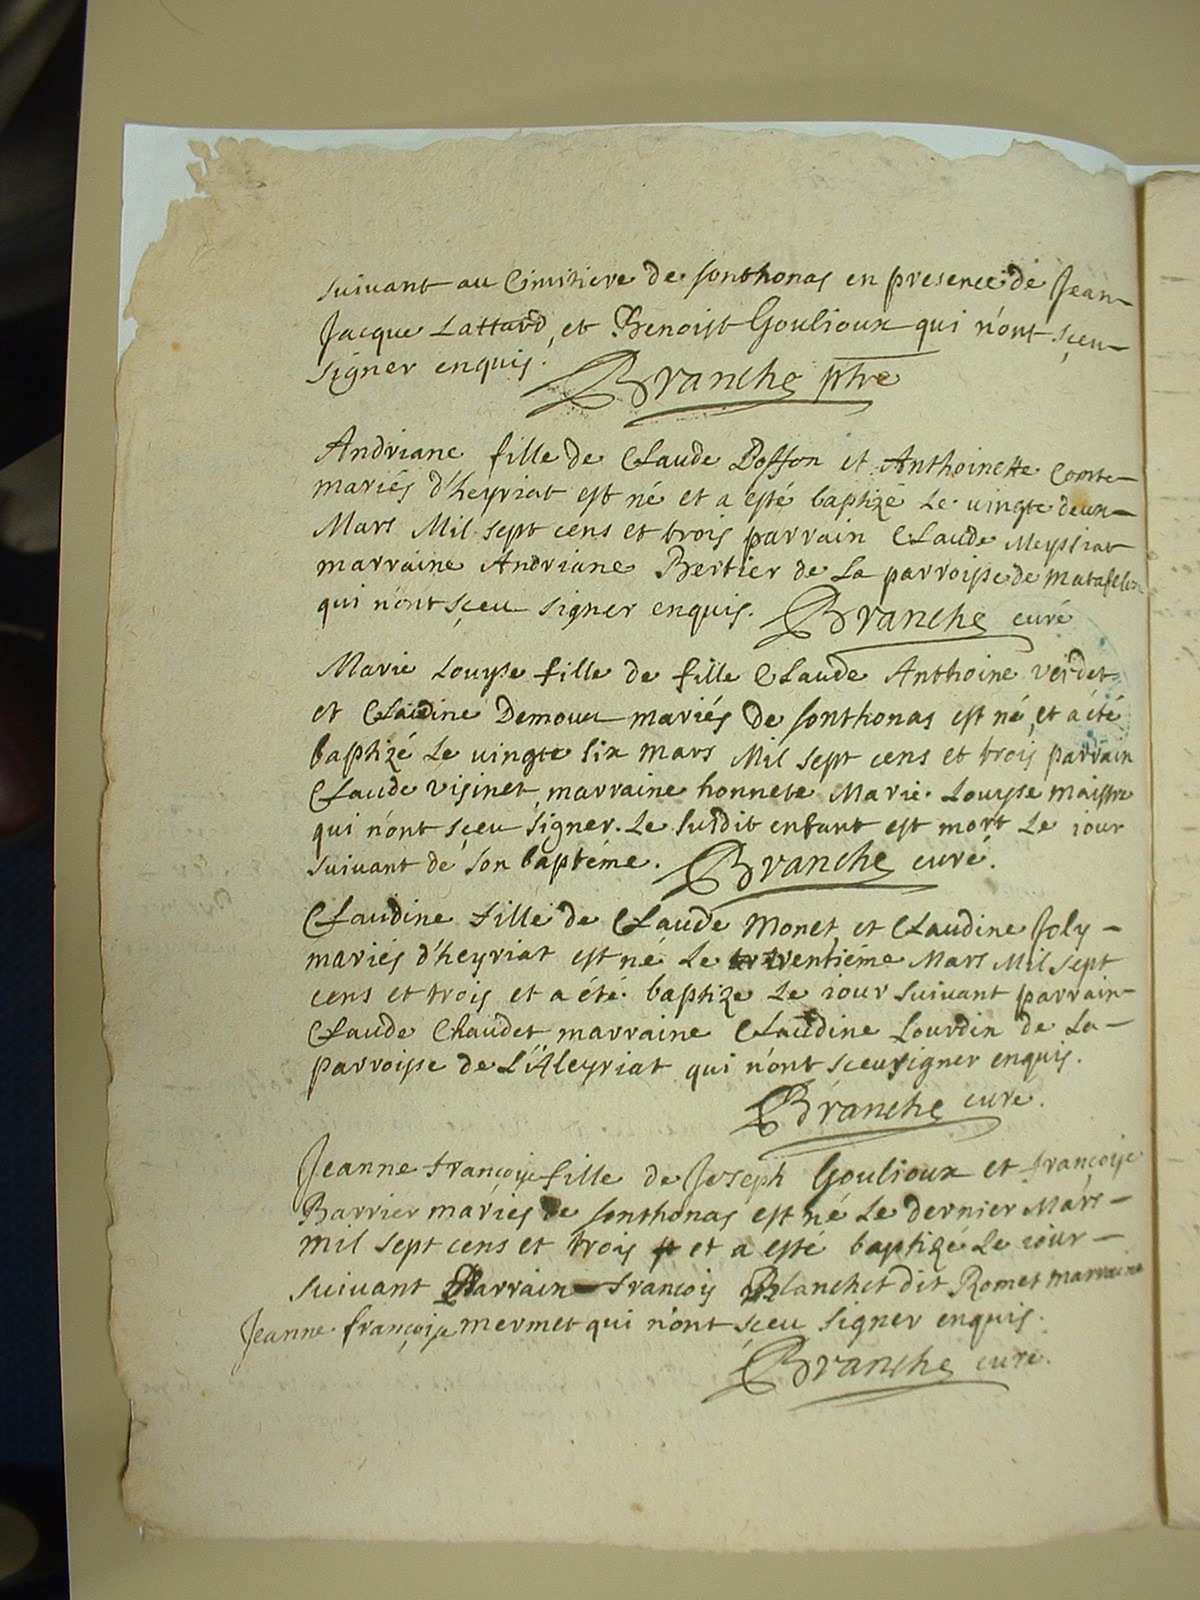 suivant au Cimitiere de sonthonas en presence de Jean
Jacque Lattard, et Benoist Goulioux qui n'ont sçeu
signer enquis. Branche ptre
Andriane fille de Claude Bosson et Anthoinette Comte
mariés d'heyriat est né et a esté baptizé Le vingte deux
Mars Mil sept cens et trois parrain Claude Meyssiat
marraine Andriane Bertier de La parroisse de matafelon
qui n'ont sçeu signer enquis. Branche curé
Marie Louyse fille de fille Claude Anthoine verdet
et Claudine Demoux mariés de sonthonas est né, et a été
baptizé Le vingte six mars Mil sept cens et trois parrain
Claude visinet, marraine honnete Marie Louyse maistre
qui n'ont sçeu signer. Le susdit enfant est mort Le iour
suivant de son baptéme. Branche curé.
Claudine fille de Claude Monet, et Claudine Joly
mariés d'heyriat est né Le trentiéme Mars Mil sept
cens et trois et a été baptize Le iour suivant parrain
Claude Chaudet, marraine Claudine Lourdin de La
parroisse de L'Aleyriat qui n'ont sceu signer enquis.
Branche curé.
Jeanne françoise fille de Joseph Goulioux et françoise
Barrier mariés de sonthonas est né Le dernier Mars
mil sept cens et trois et a esté baptizé Le iour
suivant Parrain françois Blanchet dit Romet marraine
Jeanne françoise mermet qui n'ont sçeu signer enquis.
Branche curé.